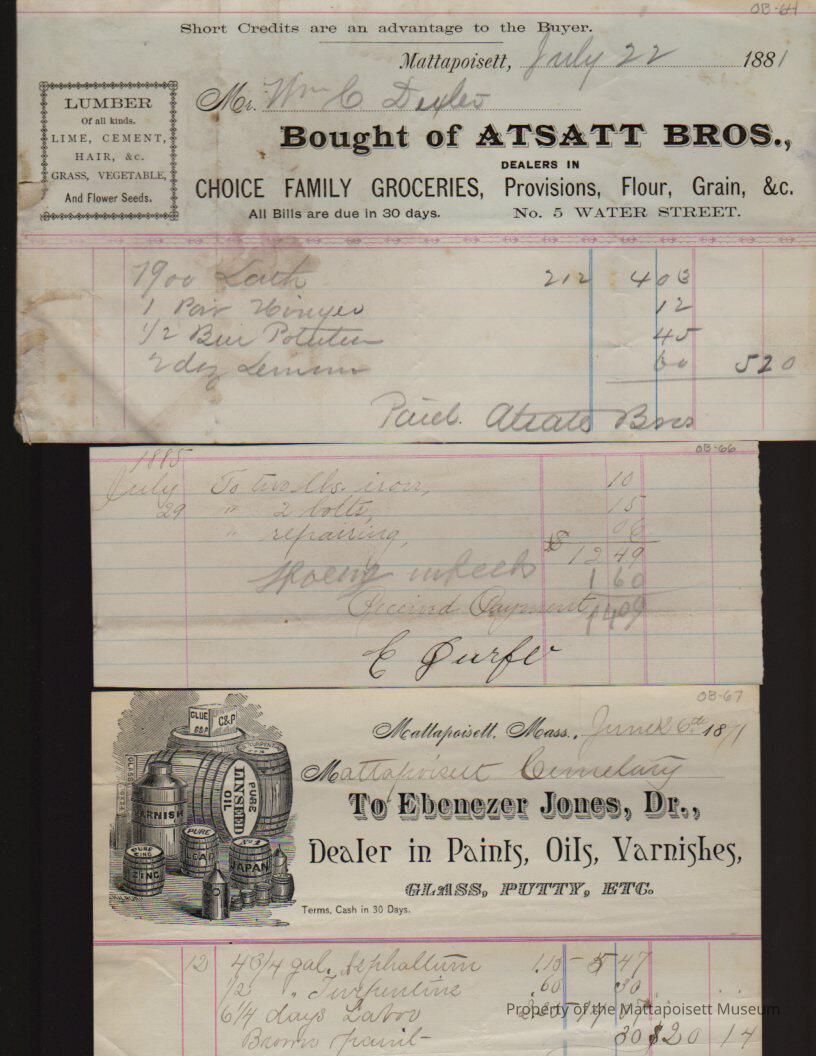 OB-64
Short Credits are an advantage to the Buyer.
Mattapoisett, July 22 1881
LUMBER
Of all kinds.
LIME, CEMENT,
HAIR, &c.
GRASS, VEGETABLE,
And Flower Seeds.
Mr. Wm C Dexter
Bought of ATSATT BROS.,
DEALERS IN
CHOICE FAMILY GROCERIES, Provisions, Flour, Grain, &c.
All Bills are due in 30 days. No. 5 WATER STREET.
1900 Lath 212 403
1 Pair Hinges 12
1/2 Bus Potatoes 45
2 doz Lemons 60 520
Paid. Atsatt Bros
OB-66
1885
July To two lbs. iron, 10
29 " 2 bolts, 15
" repairing,
$ 12 49
wheels 1 60
Received Payment 1409
E Durfe
OB-67
Mattapoisett, Mass., June 26th 1871
Mattapoisett Cemetary
To Ebenezer Jones, Dr.,
Dealer in Paints, Oils, Varnishes,
GLASS, PUTTY, ETC.
Terms, Cash in 30 Days.
GLUE
C&P
PURE
LINSEED
OIL
VARNISH
PURE
LEAD
PURE
ZINC
ZINC
No 1
JAPAN
12 4 3/4 gal. Asphaltum 1.15 - 5 47
1/2 " Turpentine .60 30
6 1/4 days Labor
Brown paint 30 $20 14
Property of the Mattapoisett Museum